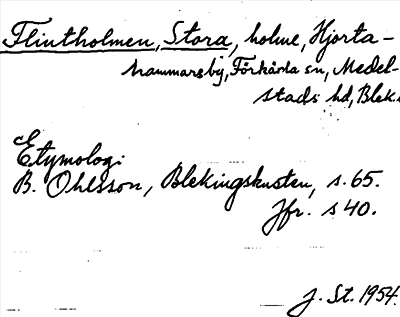 Flintholmen, Stora, holme, Hjorta-
hammarsby, Förkärla sn, Medel-
stads hd, Blek.
Etymologi
B. Ohlsson, Blekingskusten, s. 65.
Jfr. s 40.
J. St. 1954.